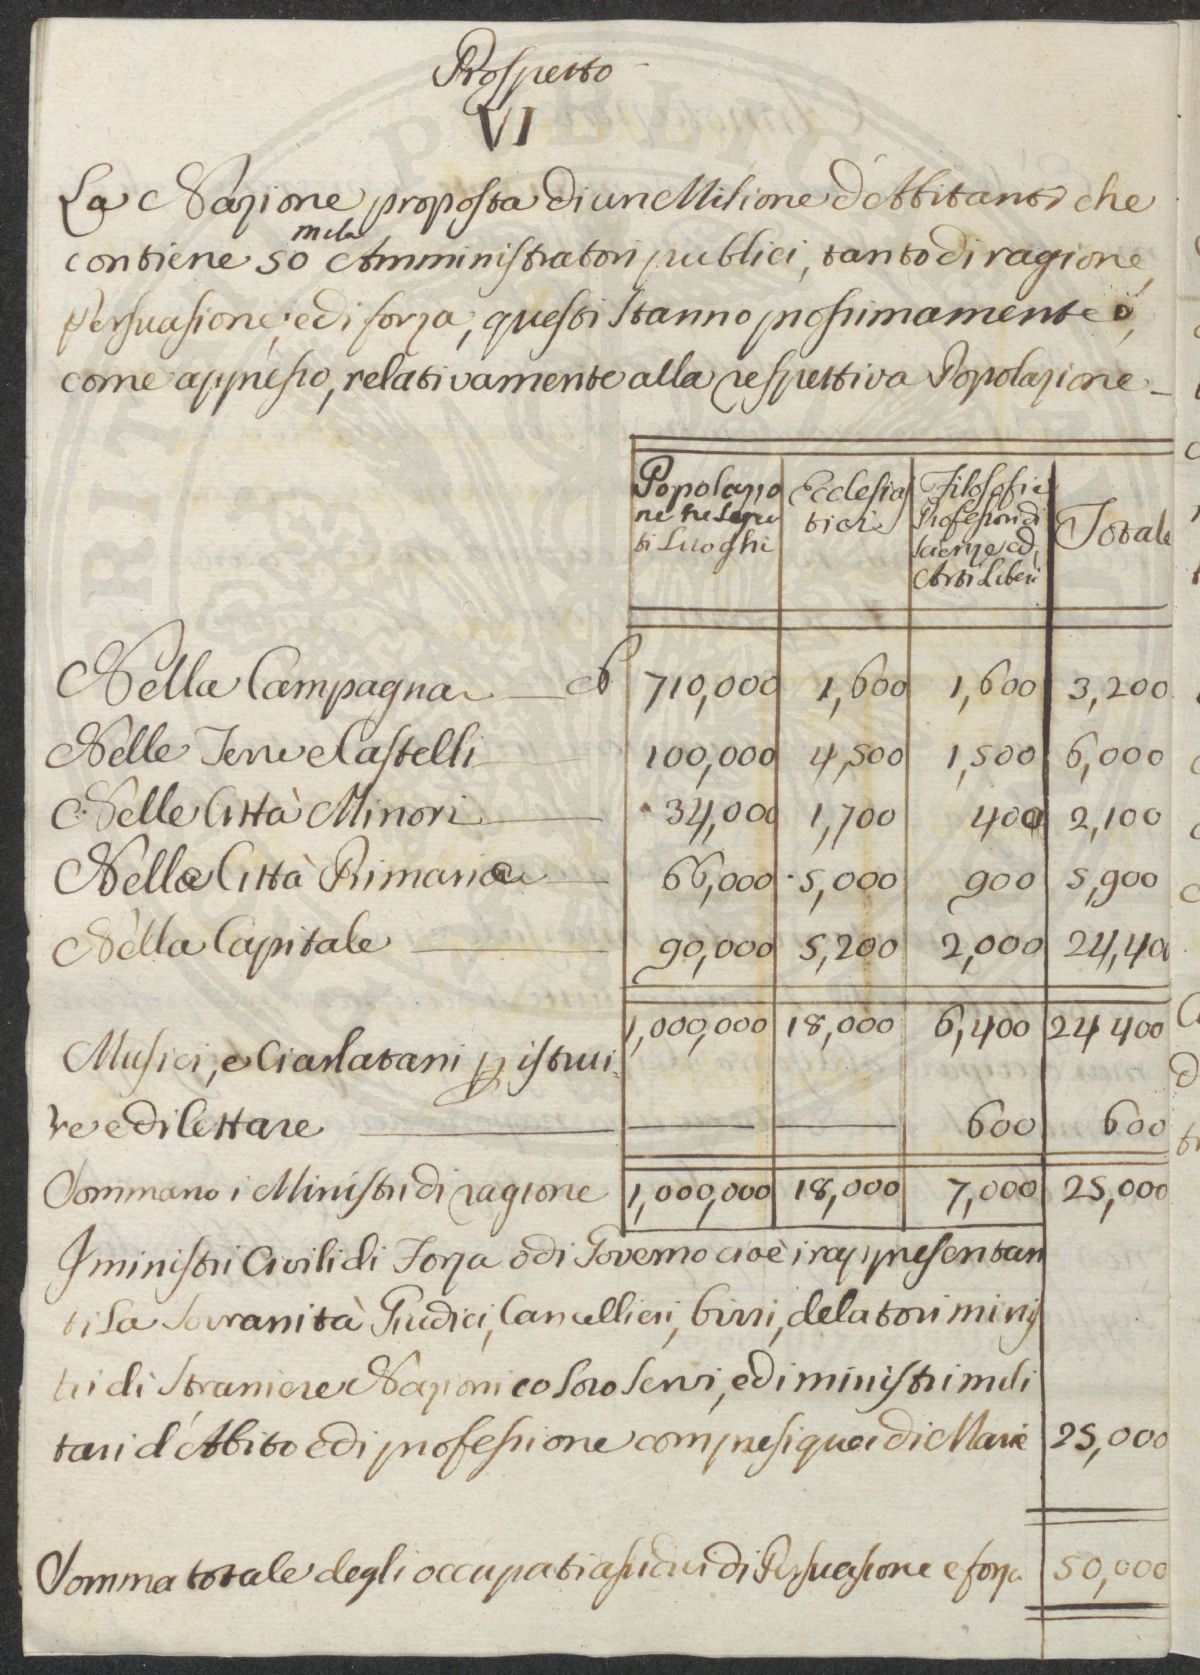 Prospetto
VI
La Nazione proposta di un Milione d'Abitanti che
contiene 50 mila Amministratori publici, tanto di ragione,
Persuasione, e di forza, questi stanno prossimamente,
come appresso, relativamente alla respettiva Popolazione
Popolazio Ecclesias Filosofi e Totale
ne ne Segu tici Professori di
ti Luoghi scienze ed
Arti Liberi
Nella Campagna N 710,000 1,600 1,600 3,200
Nelle Terre e Castelli 100,000 4,500 1,500 6,000
Nelle Città Minori 34,000 1,700 400 2,100
Nella Città Primaria 66,000 5,000 900 5,900
Nella Capitale 90,000 5,200 2,000 24,400
1,000,000 18,000 6,400 24 400
Musici, e Ciarlatani p istrui
re e dilettare 600 600
Sommano i Ministri di ragione 1,000,000 18,000 7,000 25,000
I ministri Civili di Forza o di Governo cioè i rappresentan
ti la Sovranità Giudici, Cancellieri, birri, delatori minis
tri di straniere Nazioni co loro servi, ed i ministri mili
tari d'Abito e di professione compresi quei di Mare 25,000
Somma totale degli occupati assidui di Persuasione e forza 50,000